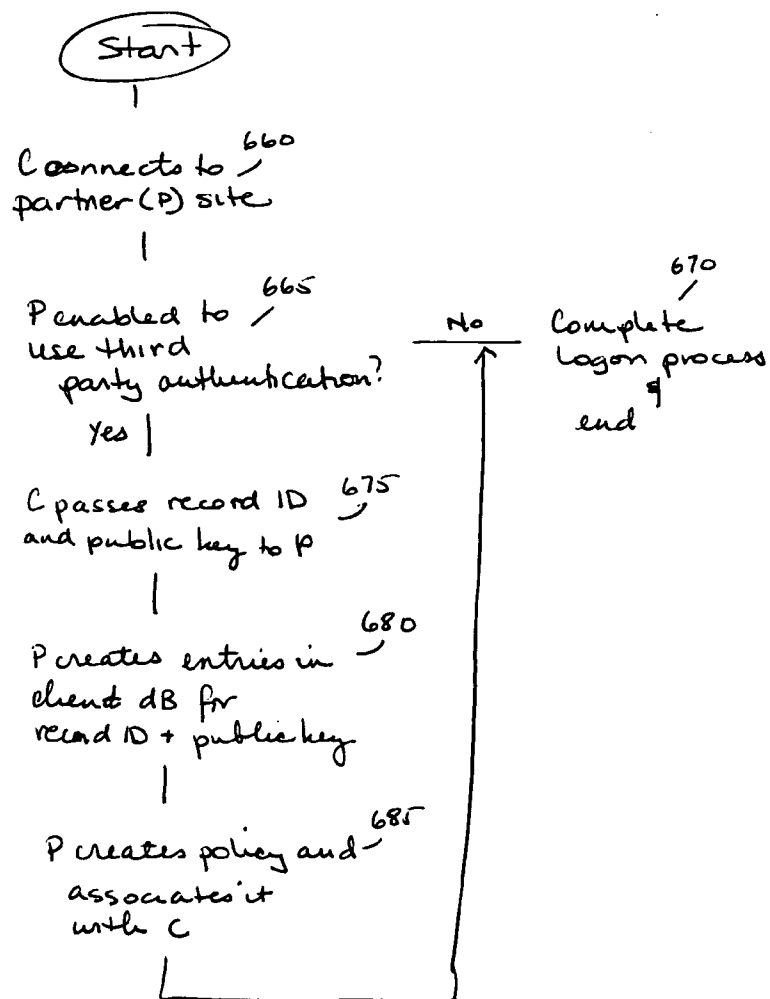 Start
660
C connects to
partner (P) site
665
P enabled to
use third
party authentication?
Yes
No
670
Complete
logon process
&
end
C passes record ID 675
and public key to P
680
P creates entries in
client dB for
record ID + public key
685
P creates policy and
associates it
with C